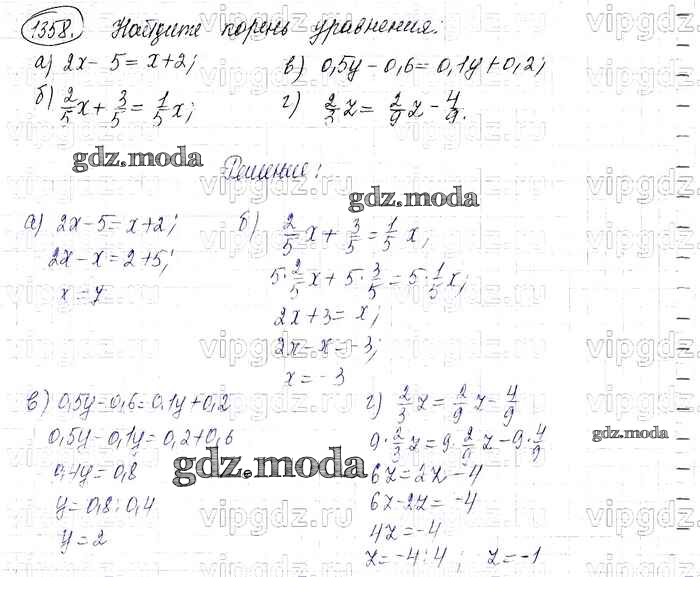 1358. Найдите корень уравнения:
а) 2x - 5 = x + 2;
в) 0,5y - 0,6 = 0,1y + 0,2;
б) 2/5 x + 3/5 = 1/5 x;
г) 2/3 z = 2/9 z - 4/9.
Решение:
а) 2x - 5 = x + 2;
2x - x = 2 + 5;
x = 7
б) 2/5 x + 3/5 = 1/5 x;
5 · 2/5 x + 5 · 3/5 = 5 · 1/5 x;
2x + 3 = x;
2x - x = -3;
x = -3
в) 0,5y - 0,6 = 0,1y + 0,2
0,5y - 0,1y = 0,2 + 0,6
0,4y = 0,8
y = 0,8 : 0,4
y = 2
г) 2/3 z = 2/9 z - 4/9
9 · 2/3 z = 9 · 2/9 z - 9 · 4/9
6z = 2z - 4
6z - 2z = -4
4z = -4
z = -4 : 4; z = -1
gdz.moda
gdz.moda
gdz.moda
gdz.moda
vipgdz.ru